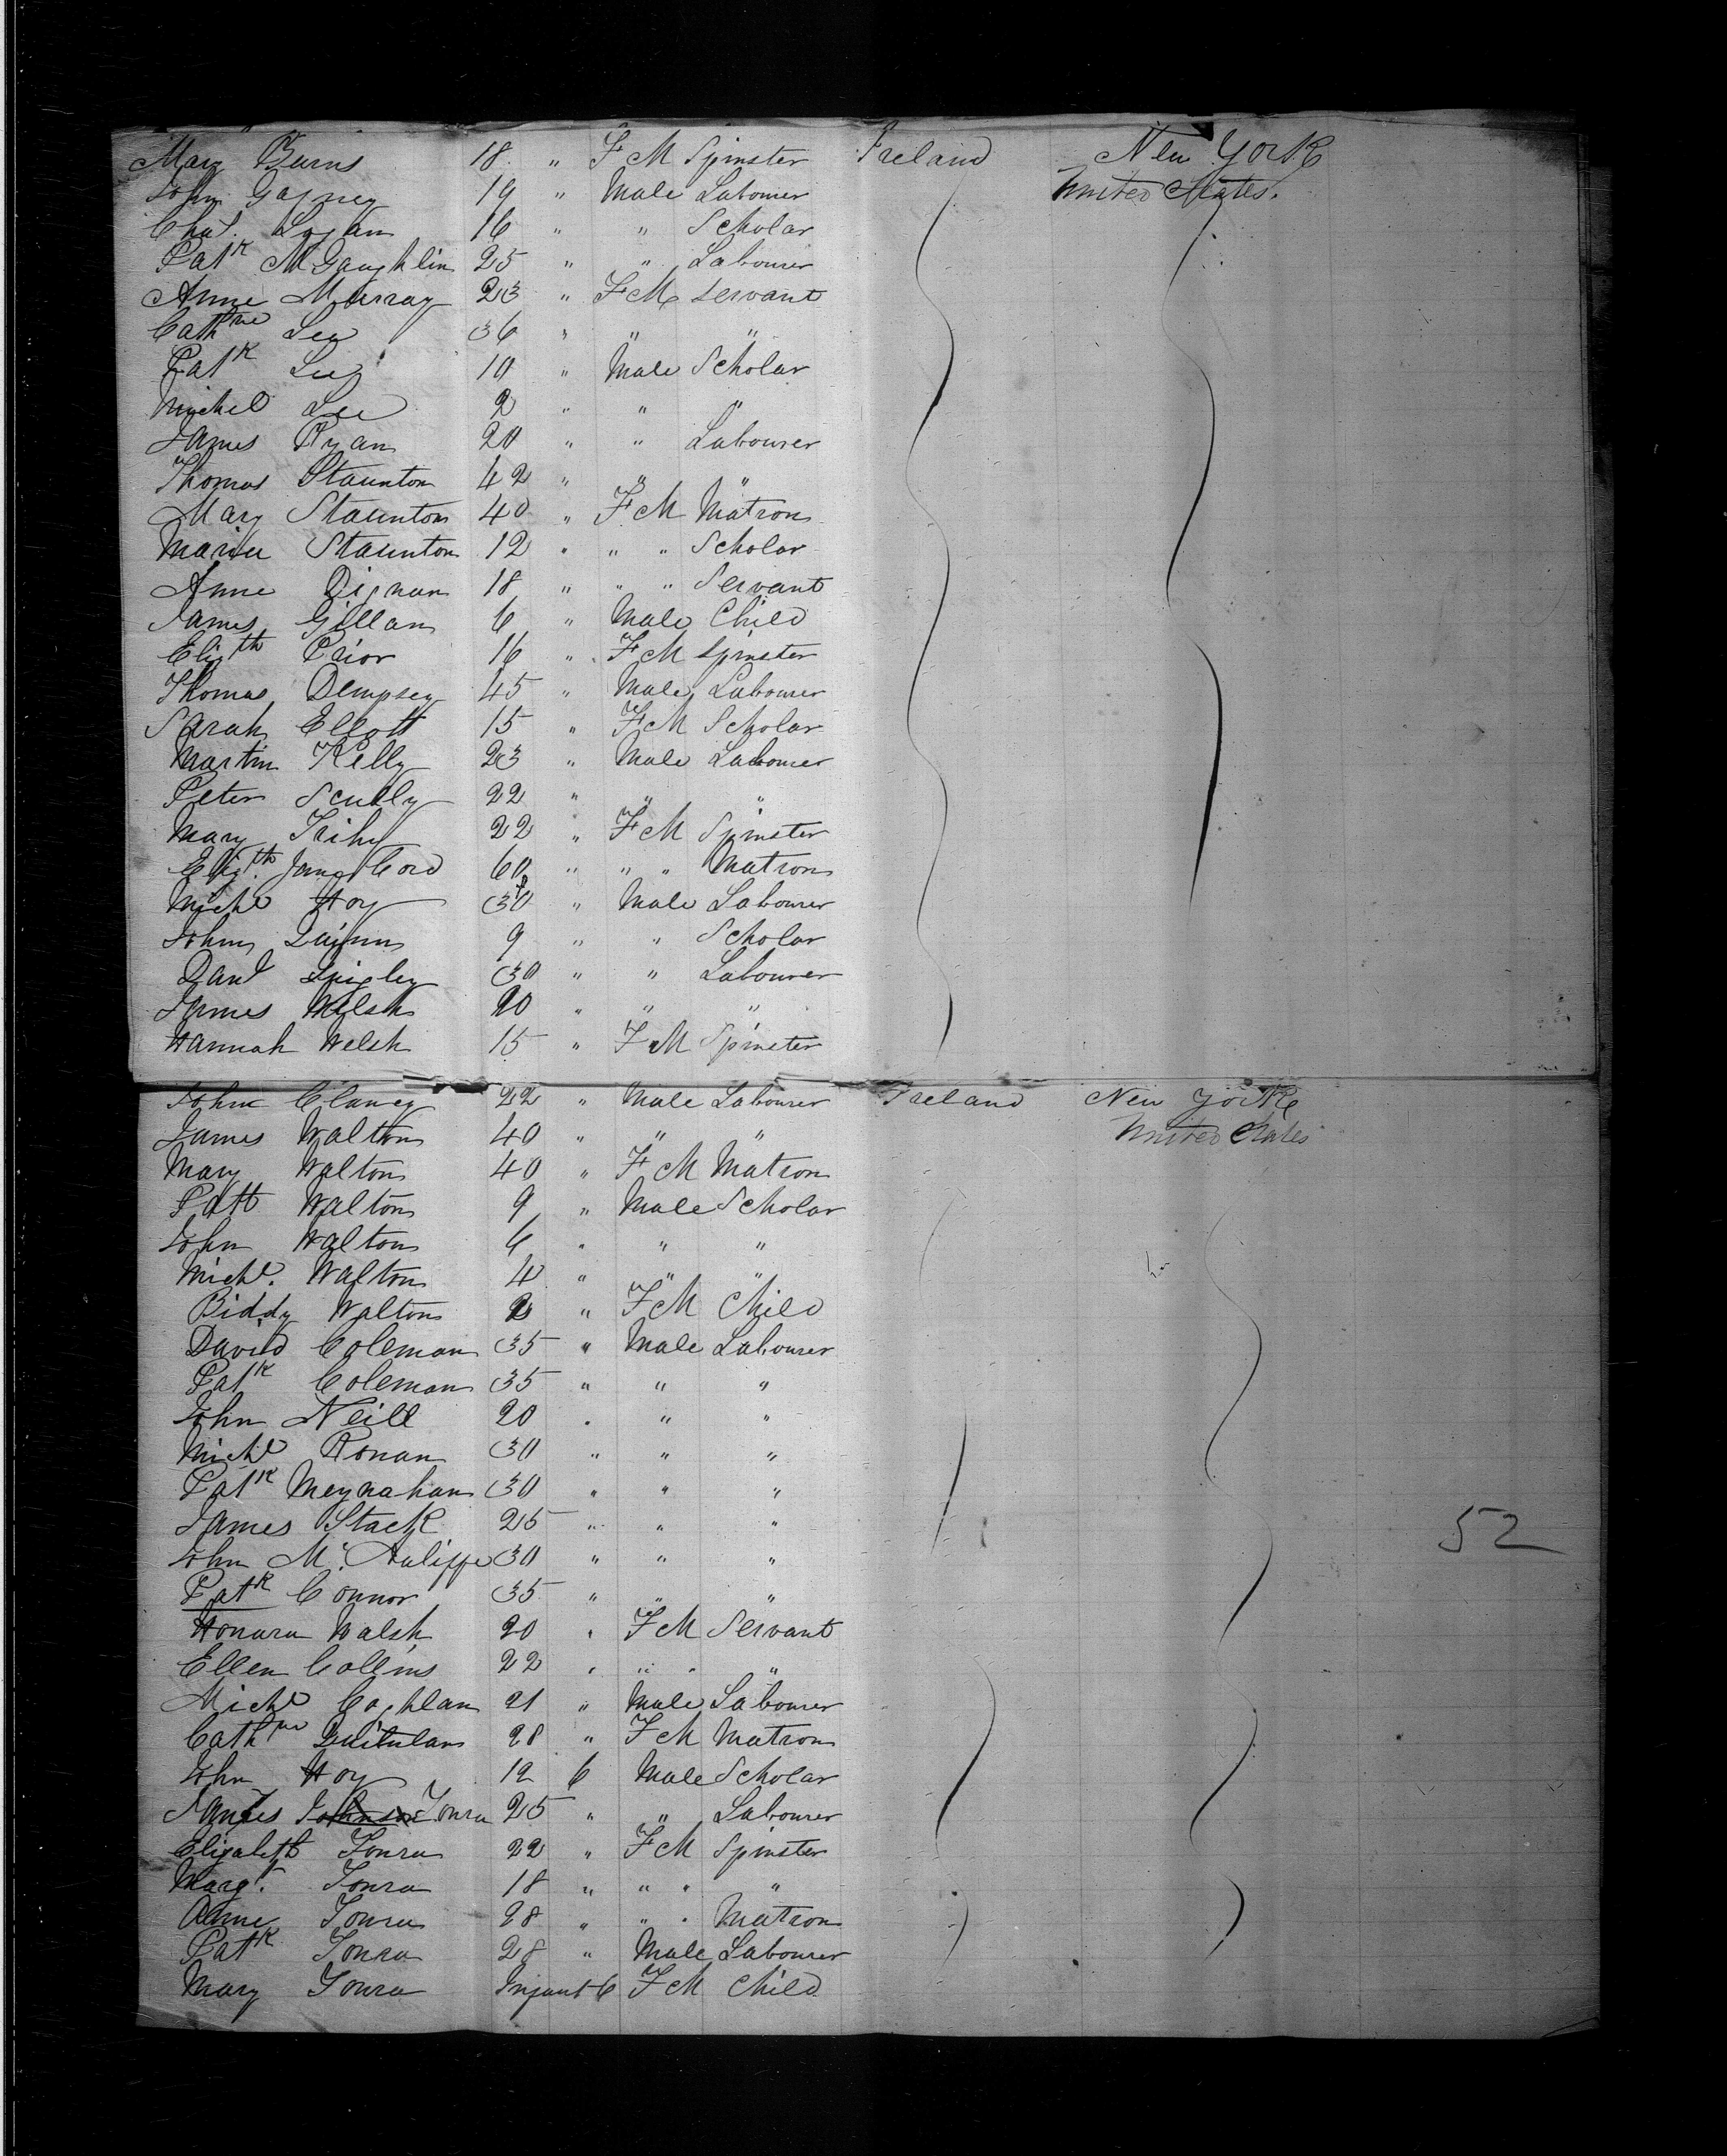 Mary Burns 18 " F M Spinster Ireland New York
John Gafney 19 " Male Labourer United States.
Chas. Logan 16 " " Scholar
Patk McGaughlin 25 " " Labourer
Anne Murray 23 " F M Servant
Cathne Lee 36 " " "
Patk Lee 10 " Male Scholar
Michel Lee 2 " " "
James Ryan 20 " " Labourer
Thomas Staunton 42 " " "
Mary Staunton 40 " F M Matron
Maria Staunton 12 " " " Scholar
Anne Dignan 18 " " " Servant
James Gillan 6 " Male Child
Elizth Prior 16 " F M Spinster
Thomas Dempsey 45 " Male Labourer
Sarah Ellott 15 " F M Scholar
Martin Kelly 23 " Male Labourer
Peter Scully 22 " " "
Mary 22 " F M Spinster
Elizth. Jane Cord 60 " " " Matron
Michl Hoy 30 " Male Labourer
John Quinn 9 " " Scholar
Danl 30 " " Labourer
James Welsh 20 " " "
Hannah Welsh 15 " F M Spinster
John Clancy 22 " Male Labourer Ireland New York
James Walton 40 " " " United States
Mary Walton 40 " F M Matron
Patt Walton 9 " Male Scholar
John Walton 6 " " "
Michl. Walton 4 " " "
Biddy Walton 2 " F M Child
David Coleman 35 " Male Labourer
Patk Coleman 35 " " "
John Neill 20 " " "
Michl Ronan 30 " " "
Patk Meynahan 30 " " "
James Stack 25 " " "
52
John Mc. Auliffe 30 " " "
Patk Connor 35 " " "
Honara Walsh 20 " F M Servant
Ellen Collins 22 " " " "
Michl Coghlan 21 " Male Labourer
Cathne Quinlan 28 " F M Matron
John Hoy 12 6 Male Scholar
James Johnson Tonra 25 " " Labourer
Elizabeth Tonra 22 " F M Spinster
Margt. Tonra 18 " " " "
Anne Tonra 28 " " " Matron
Patk Tonra 28 " Male Labourer
Mary Tonra Infant 6 F M Child